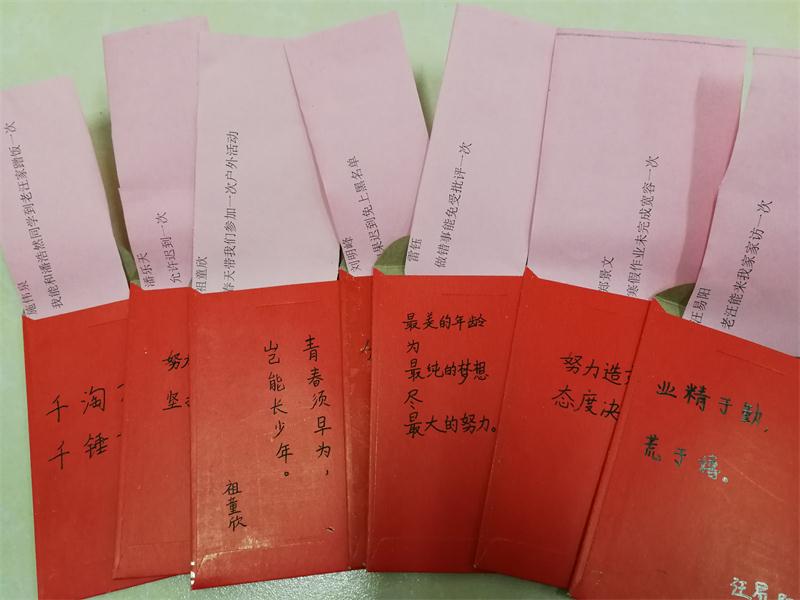 施伟泉
我能和潘浩然同学到老汪家蹭饭一次
千淘
千锤
潘乐天
允许迟到一次
努力
坚
祖童欣
春天带我们参加一次户外活动
青春须早为，
岂能长少年。
祖童欣
刘明峰
果迟到免上黑名单
雷钰
做错事能免受批评一次
最美的年龄
为
最纯的梦想
尽
最大的努力。
郑景文
寒假作业未完成宽容一次
努力造
态度决
汪易阳
老汪能来我家家访一次
业精于勤，
荒于嬉。
汪易阳